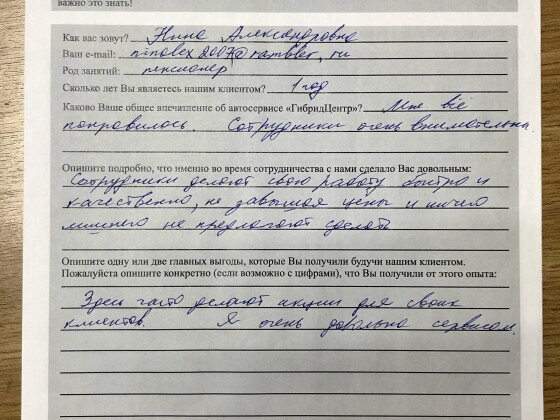 важно это знать!
Как вас зовут? Нина Александровна
Ваш e-mail: ninalex2007@rambler.ru
Род занятий: пенсионер
Сколько лет Вы являетесь нашим клиентом? 1 год
Каково Ваше общее впечатление об автосервисе «ГибридЦентр»? Мне все
понравилось. Сотрудники очень внимательны.
Опишите подробно, что именно во время сотрудничества с нами сделало Вас довольным:
Сотрудники делают свою работу быстро и
качественно, не завышая цены и ничего
лишнего не предлагают сделать
Опишите одну или две главных выгоды, которые Вы получили будучи нашим клиентом.
Пожалуйста опишите конкретно (если возможно с цифрами), что Вы получили от этого опыта:
Здесь часто делают акции для своих
клиентов. Я очень довольна сервисом.